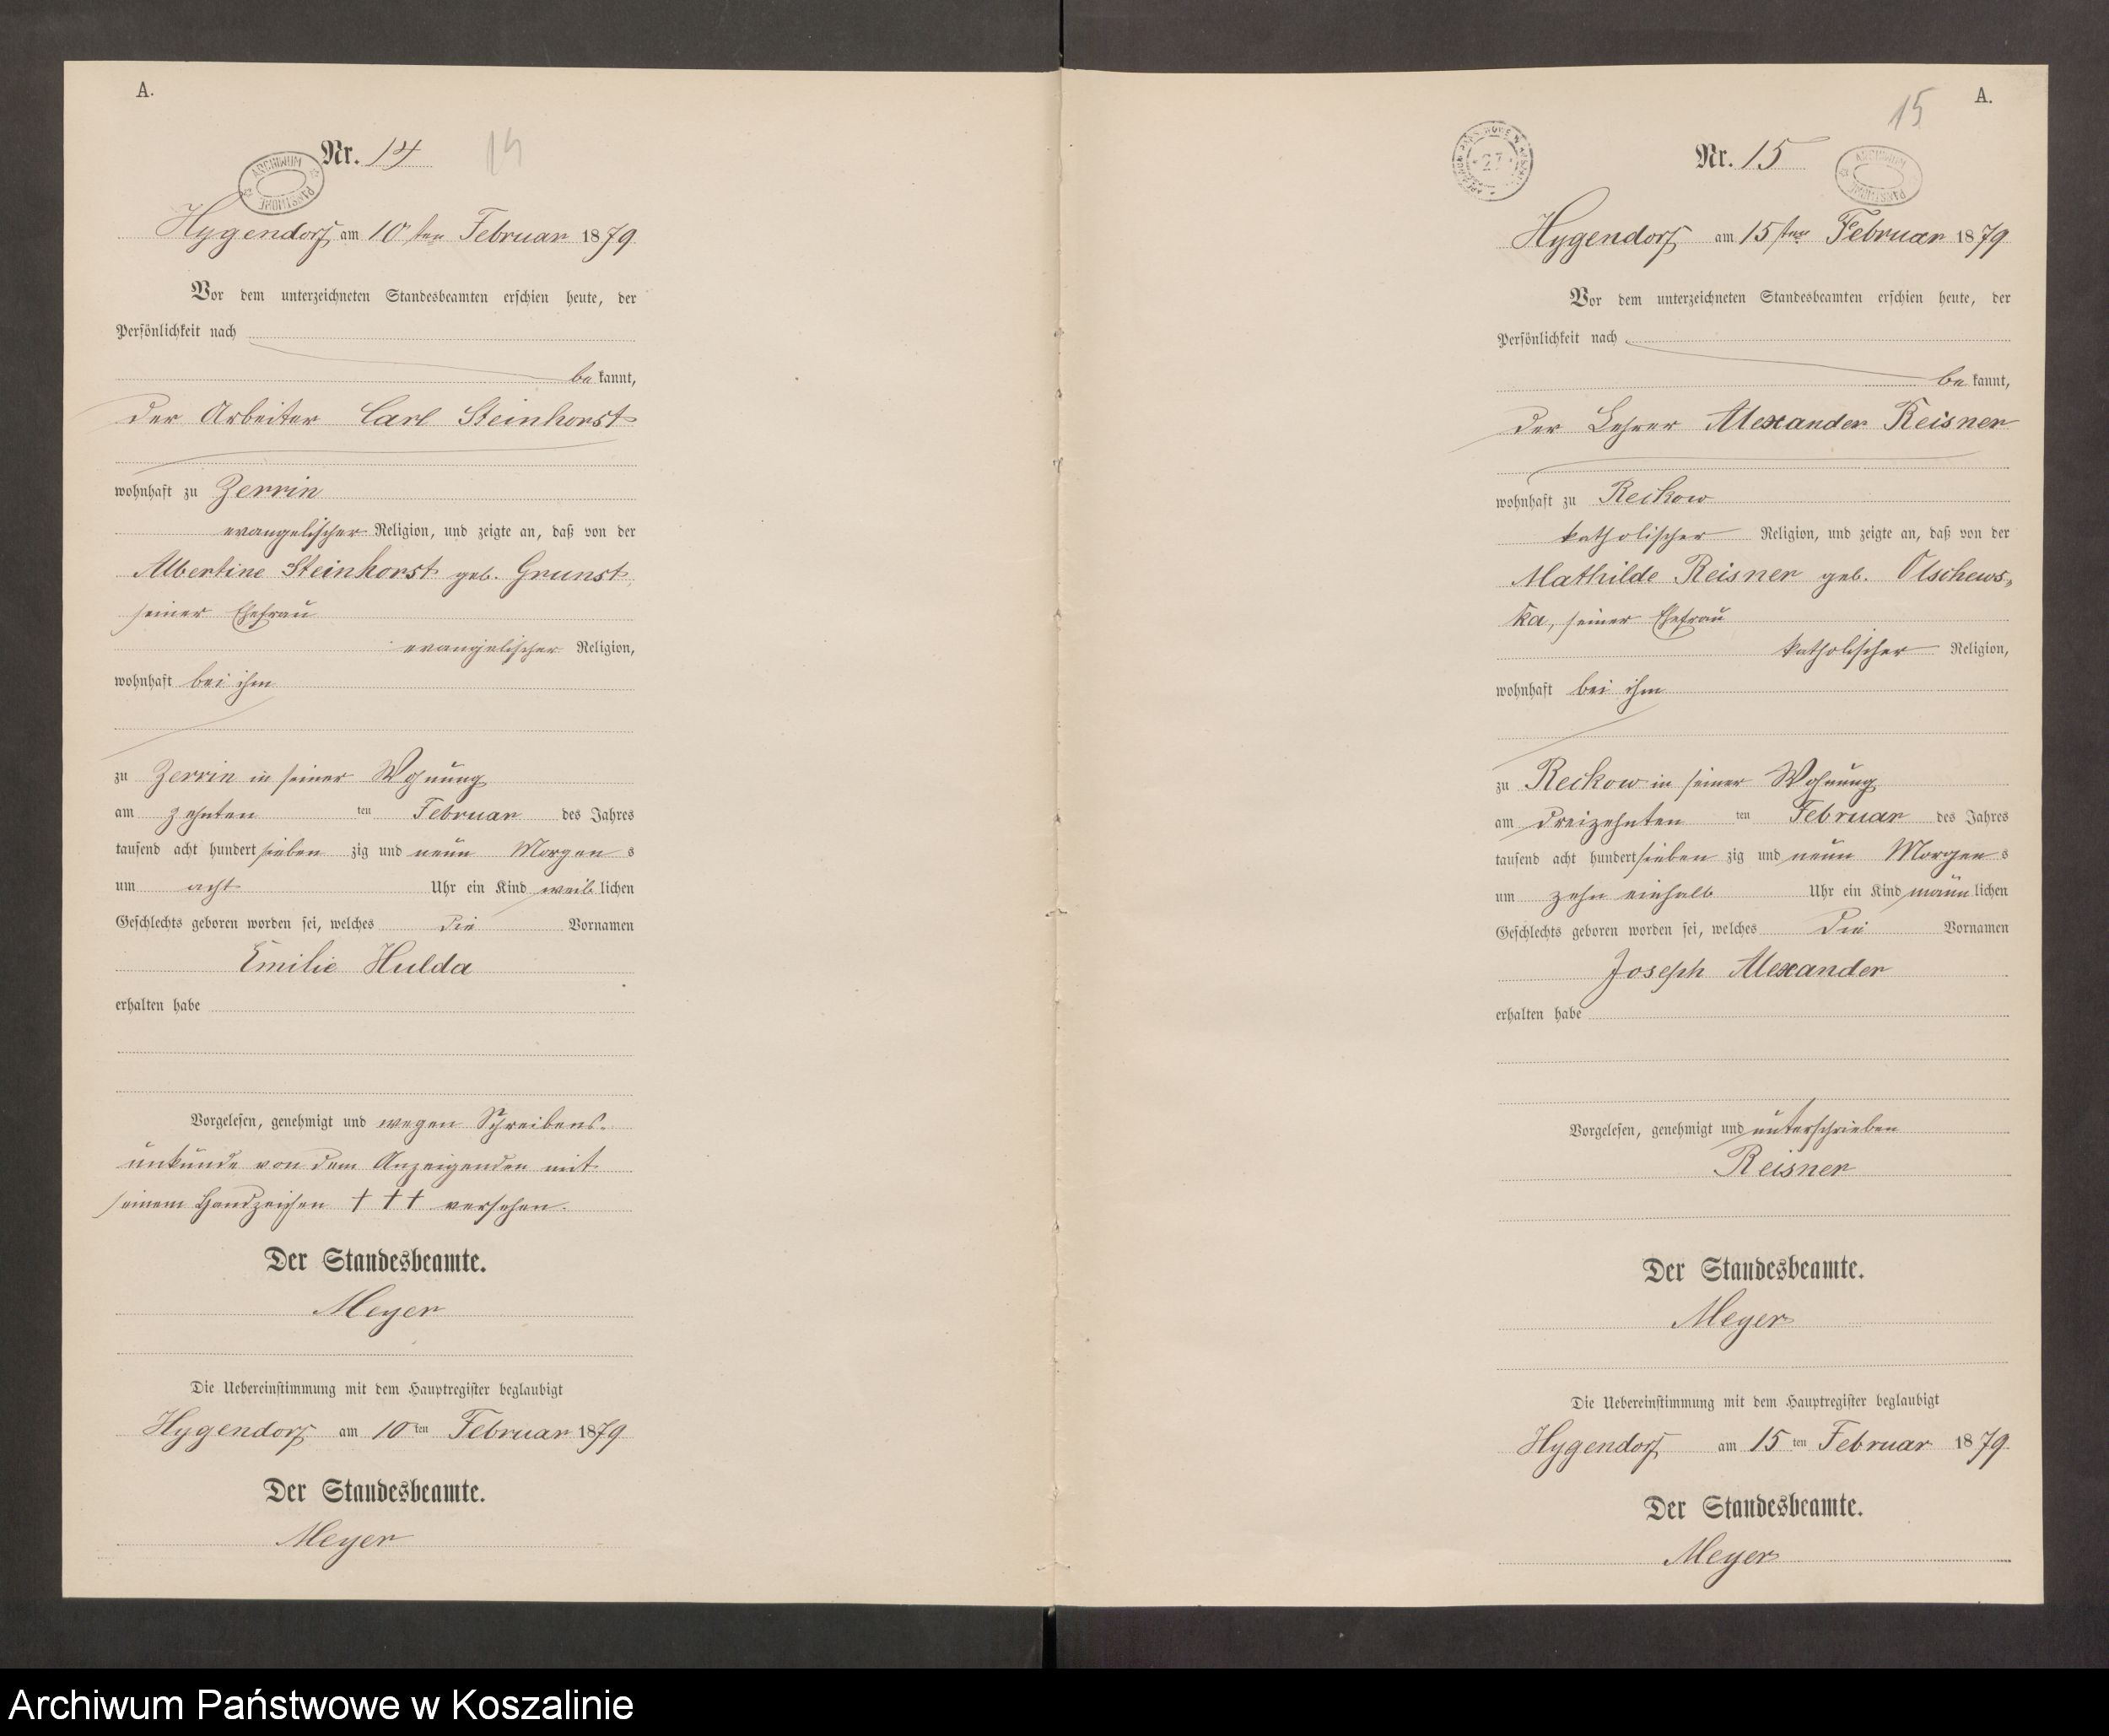 A.
Nr. 14
14
ARCHIWUM PAŃSTWOWE
Hygendorf am 10ten Februar 1879.
Vor dem unterzeichneten Standesbeamten erschien heute, der
Persönlichkeit nach
be kannt,
der Arbeiter Carl Steinhorst
wohnhaft zu Zerrin
evangelischer Religion, und zeigte an, daß von der
Albertine Steinhorst geb. Grunst,
seiner Ehefrau
evangelischer Religion,
wohnhaft bei ihm
zu Zerrin in seiner Wohnung
am zehnten ten Februar des Jahres
tausend acht hundert sieben zig und neun Morgen s
um acht Uhr ein Kind weib lichen
Geschlechts geboren worden sei, welches die Vornamen
Emilie Hulda
erhalten habe
Vorgelesen, genehmigt und wegen Schreibens-
unkunde von dem Anzeigenden mit
seinem Handzeichen +++ versehen.
Der Standesbeamte.
Meyer
Die Uebereinstimmung mit dem Hauptregister beglaubigt
Hygendorf am 10 ten Februar 1879.
Der Standesbeamte.
Meyer
A.
15
Nr. 15
27
ARCHIWUM PAŃSTWOWE
Hygendorf am 15ten Februar 1879.
Vor dem unterzeichneten Standesbeamten erschien heute, der
Persönlichkeit nach
be kannt,
der Lehrer Alexander Reisner
wohnhaft zu Reckow
katholischer Religion, und zeigte an, daß von der
Mathilde Reisner geb. Olschews-
ka, seiner Ehefrau
katholischer Religion,
wohnhaft bei ihm
zu Reckow in seiner Wohnung
am dreizehnten ten Februar des Jahres
tausend acht hundert sieben zig und neun Morgen s
um zehn einhalb Uhr ein Kind männ lichen
Geschlechts geboren worden sei, welches die Vornamen
Joseph Alexander
erhalten habe
Vorgelesen, genehmigt und unterschrieben
Reisner
Der Standesbeamte.
Meyer
Die Uebereinstimmung mit dem Hauptregister beglaubigt
Hygendorf am 15 ten Februar 1879.
Der Standesbeamte.
Meyer
Archiwum Państwowe w Koszalinie